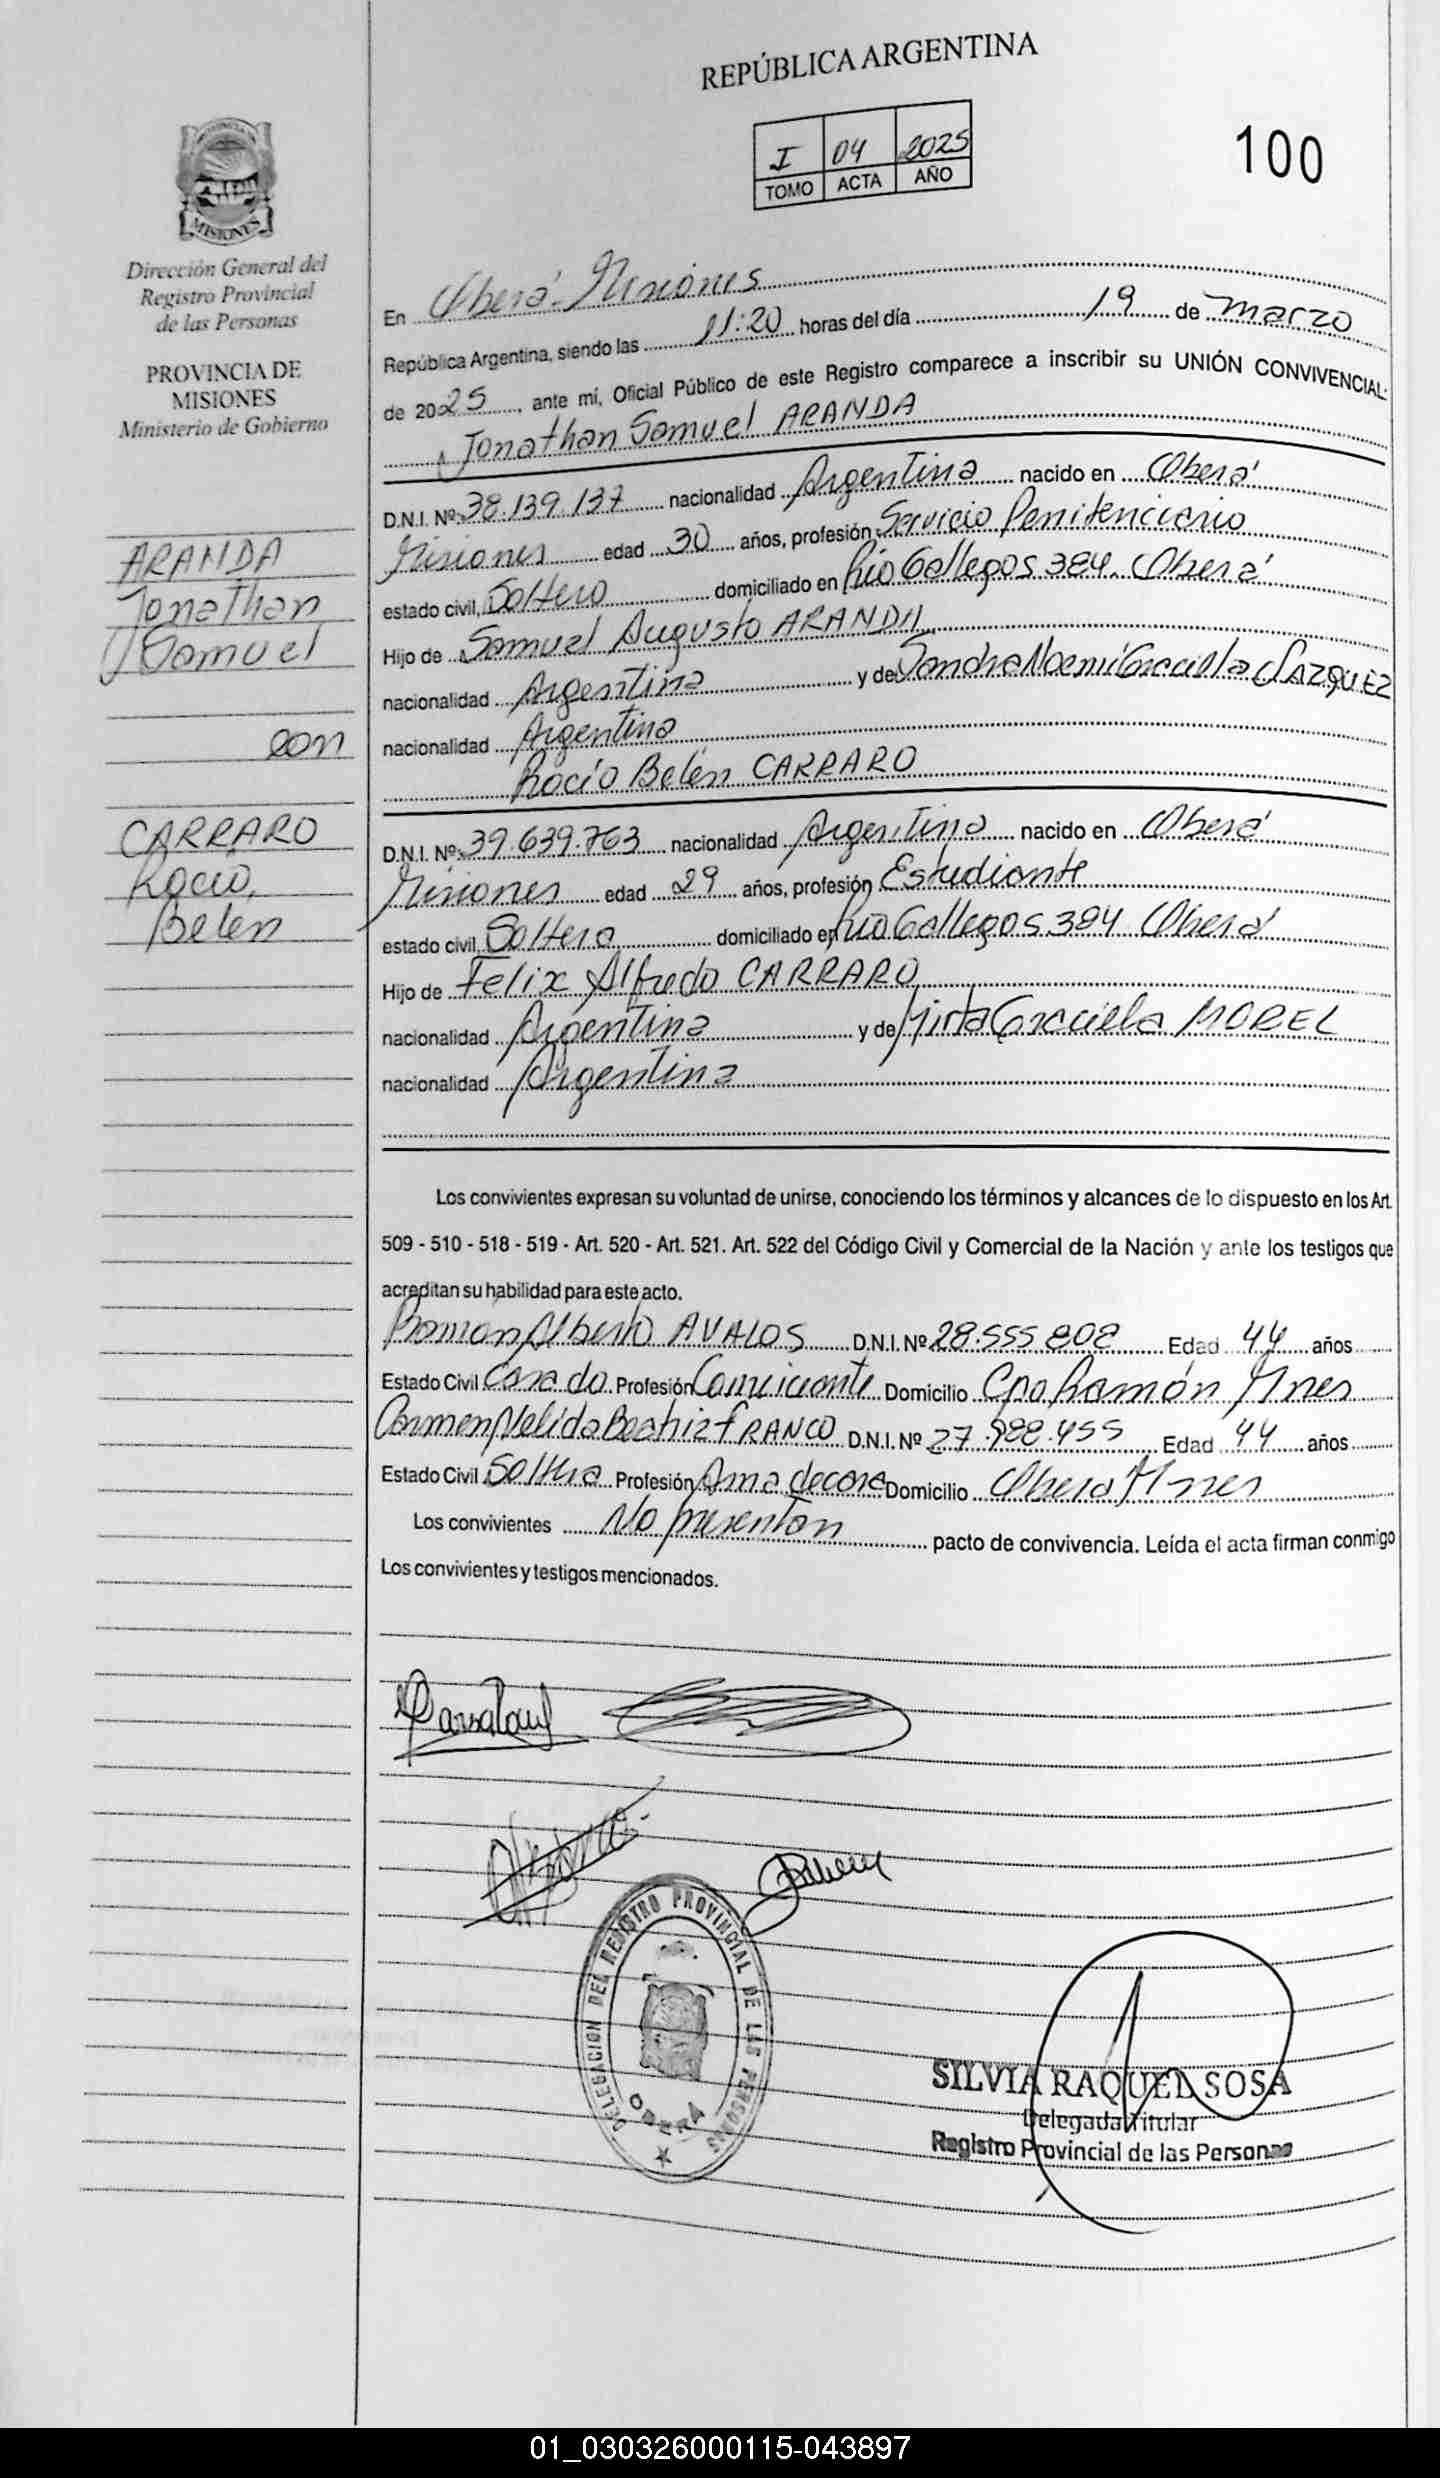 REPÚBLICA ARGENTINA
I 04 2025
TOMO ACTA AÑO
100
MISIONES
Dirección General del
Registro Provincial
de las Personas
PROVINCIA DE
MISIONES
Ministerio de Gobierno
ARANDA
Jonathan
Samuel
con
CARRARO
Rocío
Belén
En Oberá Misiones
República Argentina, siendo las 11:20 horas del día 19 de marzo
de 2025, ante mí, Oficial Público de este Registro comparece a inscribir su UNIÓN CONVIVENCIAL:
Jonathan Samuel ARANDA
D.N.I. Nº 38.139.137 nacionalidad Argentina nacido en Oberá
Misiones edad 30 años, profesión Servicio Penitenciario
estado civil, Soltero domiciliado en Río Gallegos 384. Oberá
Hijo de Samuel Augusto ARANDA
nacionalidad Argentina y de Sandra Noemí Graciela VAZQUEZ
nacionalidad Argentina
Rocío Belén CARRARO
D.N.I. Nº 39.639.763 nacionalidad Argentina nacido en Oberá
Misiones edad 29 años, profesión Estudiante
estado civil, Soltera domiciliado en Río Gallegos 384 Oberá
Hijo de Felix Alfredo CARRARO
nacionalidad Argentina y de Mirta Graciela MOREL
nacionalidad Argentina
Los convivientes expresan su voluntad de unirse, conociendo los términos y alcances de lo dispuesto en los Art.
509 - 510 - 518 - 519 - Art. 520 - Art. 521. Art. 522 del Código Civil y Comercial de la Nación y ante los testigos que
acreditan su habilidad para este acto.
Ramón Alberto AVALOS D.N.I. Nº 28.555.808 Edad 44 años
Estado Civil Casado Profesión Comerciante Domicilio Cpo Ramón Mnes
Carmen Nelida Beatriz FRANCO D.N.I. Nº 27.988.455 Edad 44 años
Estado Civil Soltera Profesión Ama de casa Domicilio Oberá Mnes
Los convivientes No presentan pacto de convivencia. Leída el acta firman conmigo
Los convivientes y testigos mencionados.
DELEGACION DEL REGISTRO PROVINCIAL DE LAS PERSONAS
OBERÁ
SILVIA RAQUEL SOSA
Delegada Titular
Registro Provincial de las Personas
01_030326000115-043897